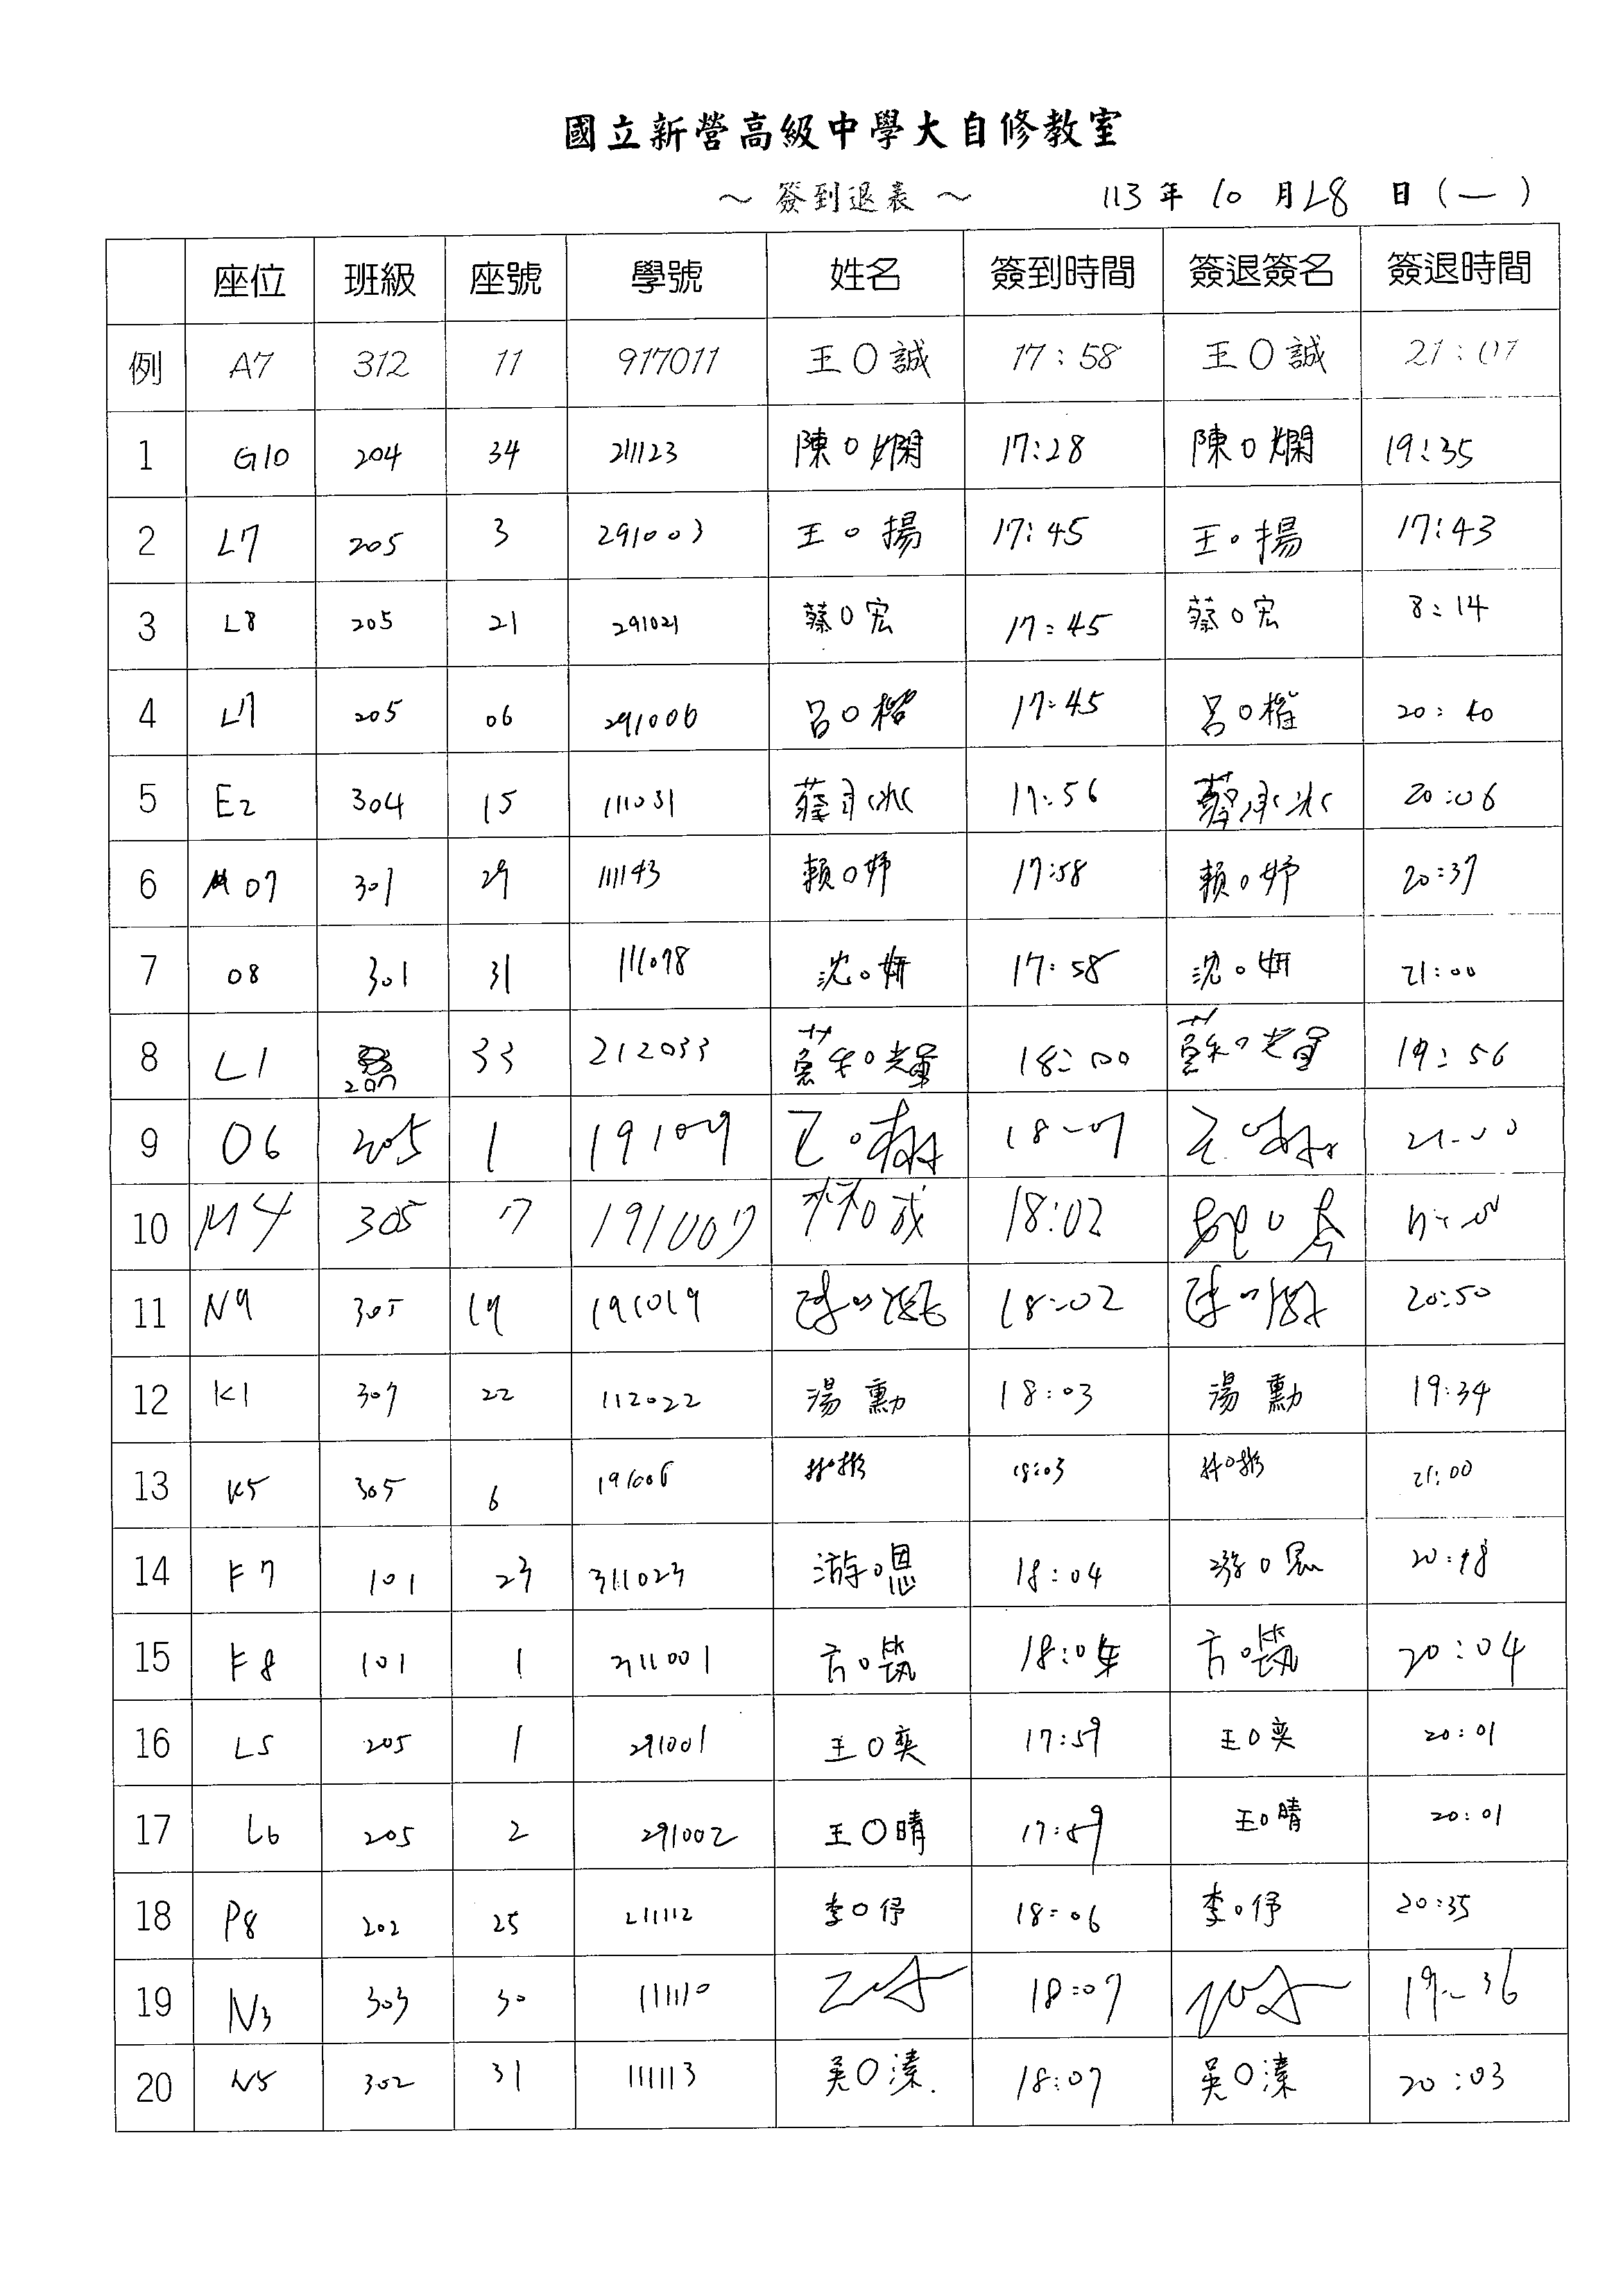 國立新營高級中學大自修教室
～ 簽到退表 ～ 113 年 10 月 28 日 (一)
座位 班級 座號 學號 姓名 簽到時間 簽退簽名 簽退時間
例 A7 312 11 917011 王〇誠 17:58 王〇誠 21:01
1 G10 204 34 211123 陳〇嫻 17:28 陳〇嫻 19:35
2 L7 205 3 291003 王〇揚 17:45 王〇揚 17:43
3 L8 205 21 291021 蔡〇宏 17:45 蔡〇宏 8:14
4 L7 205 06 291006 呂〇 17:45 呂〇權 20:40
5 E2 304 15 111031 蔡 17:56 蔡 20:06
6 M07 301 29 111143 賴〇妤 17:58 賴〇妤 20:37
7 08 301 31 111078 沈〇妍 17:58 沈〇妍 21:00
8 L1 207 33 212033 蘇〇輝 18:00 蘇〇 19:56
9 O6 205 1 18-07 21-00
10 M4 305 7 191007 林〇成 18:02
11 N9 305 19 191019 陳〇 18:02 陳〇 20:50
12 K1 307 22 112022 湯 勳 18:03 湯 勳 19:34
13 K5 305 6 191006 林〇彬 18:03 林〇彬 21:00
14 F7 101 23 311023 游〇恩 18:04 游〇恩 20:48
15 F8 101 1 311001 方〇筑 方〇筑 20:04
16 L5 205 1 291001 王〇奕 17:59 王〇奕 20:01
17 L6 205 2 291002 王〇晴 17:59 王〇晴 20:01
18 P8 202 25 211112 李〇伃 18:06 李〇伃 20:35
19 N3 303 30 111110 18:07 19:36
20 N5 302 31 111113 吳〇溱 18:07 吳〇溱 20:03